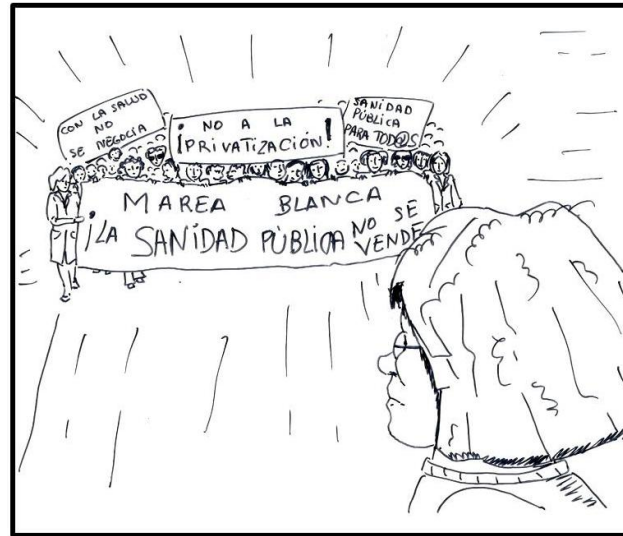 CON LA SALUD
NO
SE NEGOCIA
NO A LA
¡PRIVATIZACIÓN!
SANIDAD
PÚBLICA
PARA TOD@S
MAREA BLANCA
¡LA SANIDAD PÚBLICA NO SE
VENDE